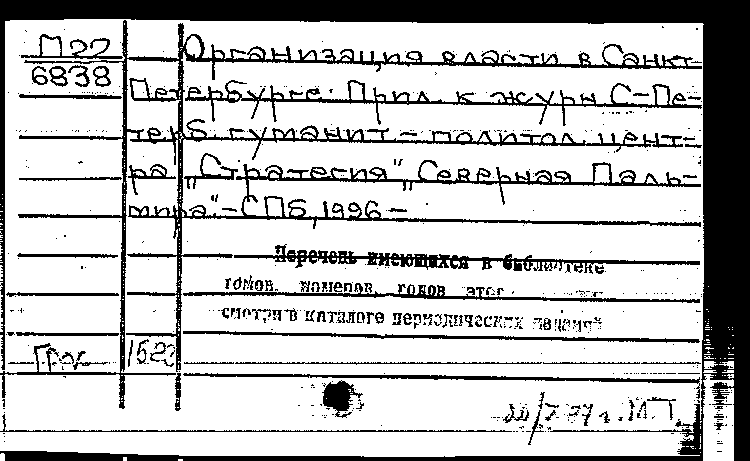 П22
6838
Организация власти в Санкт-
Петербурге. Прил. к журн С-Пе-
терб. гуманит-политол. цент-
ра „Стратегия“, „Северная Паль-
мира“.-СПб, 1996-
Перечень имеющихся в библиотеке
томов, номеров, годов этог
смотри в каталоге периодических изданий